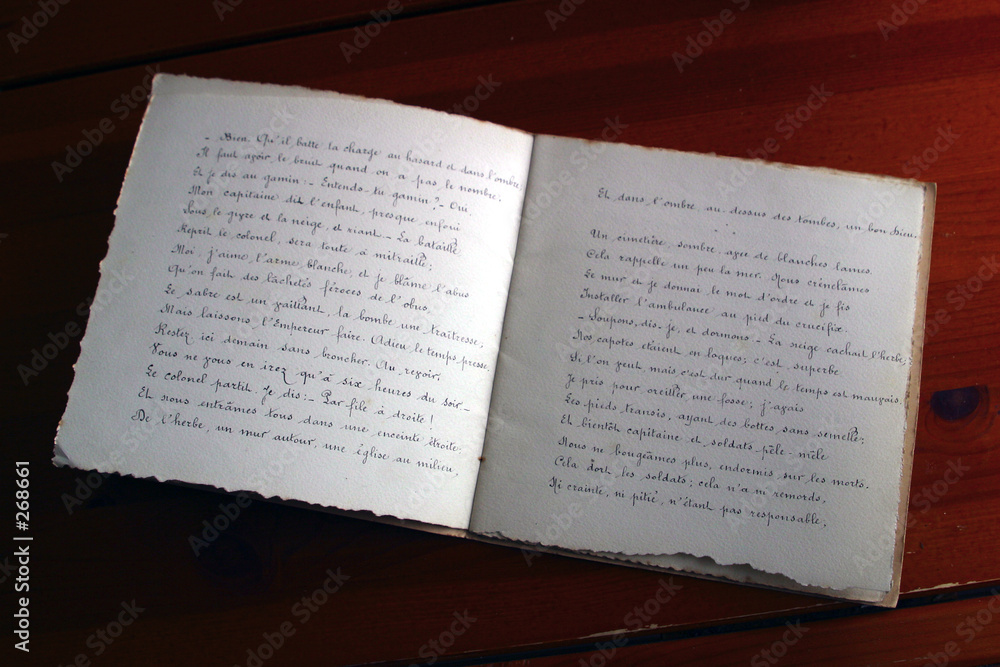 - Bien. Qu'il batte la charge au hasard et dans l'ombre;
Il faut avoir le bruit quand on a pas le nombre;
Et je dis au gamin: - Entends-tu gamin? - Oui,
Mon capitaine dit l'enfant, presque enfoui
Sous le givre et la neige, et riant - La bataille
Reprit le colonel, sera toute à mitraille;
Moi j'aime l'arme blanche, et je blâme l'abus
Qu'on fait des lâchetés féroces de l'obus.
Le sabre est un vaillant, la bombe une traîtresse;
Mais laissons l'Empereur faire. Adieu le temps presse.
Restez ici demain sans broncher. Au revoir,
Vous ne vous en irez qu'à six heures du soir-
Le colonel partit. Je dis: - Par file à droite!
Et nous entrâmes tous dans une enceinte étroite:
De l'herbe, un mur autour, une église au milieu,
Et dans l'ombre au-dessus des tombes, un bon Dieu.
Un cimetière, sombre, avec de blanches lames
Cela rappelle un peu la mer. Nous crénelâmes
Le mur et je donnai le mot d'ordre et je fis
Installer l'ambulance au pied du crucifix.
- Soupons, dis-je, et dormons - La neige cachait l'herbe;
Nos capotes étaient en loques; c'est superbe
Si l'on veut mais c'est dur quand le temps est mauvais.
Je pris pour oreiller une fosse; j'avais
Les pieds transis, ayant des bottes sans semelle;
Et bientôt capitaine et soldats-pêle-mêle
Nous ne bougeâmes plus, endormis sur les morts.
Cela dort les soldats; cela n'a ni remords,
Ni crainte, ni pitié, n'étant pas responsable;
Adobe Stock | #268661